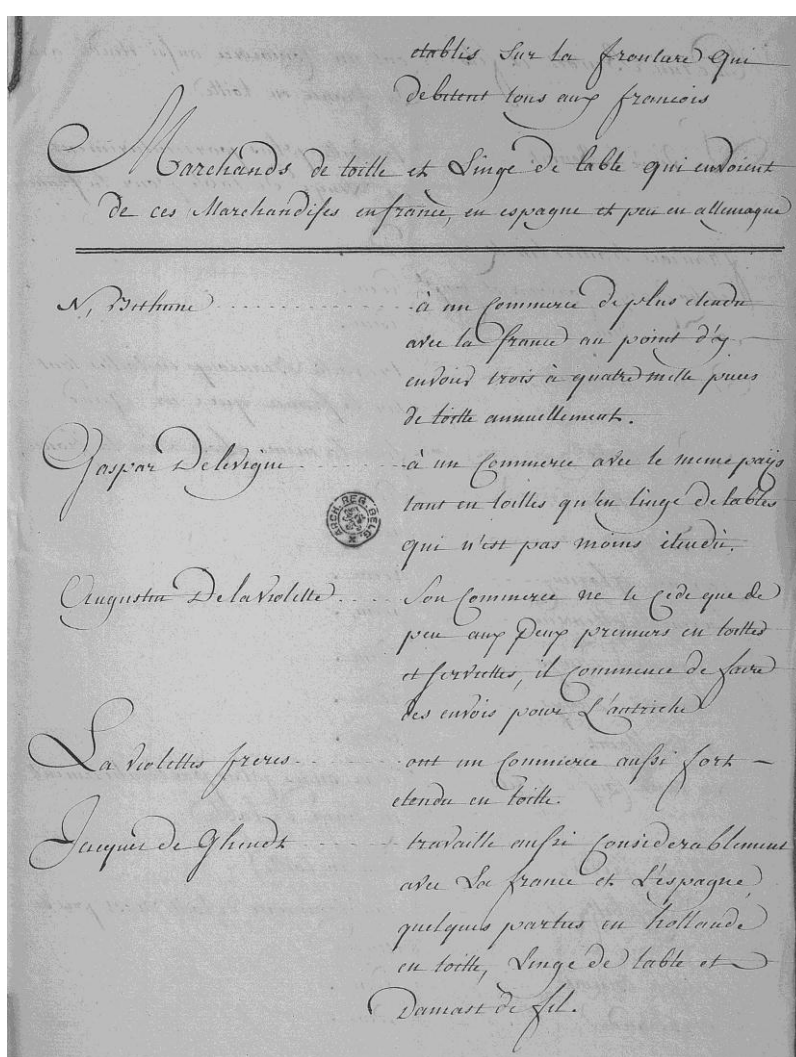 etablis Sur la frontiere qui
debitent tous aux francois
Marchands de toille et Linge de table qui envoient
de ces Marchandises en france, en espagne et peu en allemaque
N, Bethune
à un Commerce de plus etendu
avec la france au point d'y
envoier trois à quatre mille pieces
de toille annuellement.
Gaspar Delevigne
à un Commerce avec le meme pays
tant en toilles qu'en linge de tables
qui n'est pas moins étendu.
Augustin De la Violette
Son Commerce ne le Cede que de
peu aux Deux premiers en toilles
et serviettes, il Commence de faire
des envois pour L'autriche
La Violettes freres
ont un Commerce aussi fort
etendu en toille.
Jacques de Ghendt
travaille aussi Considerablement
avec La france et L'espagne,
quelques parties en hollande
en toille, Linge de table et
Damast de fil.
ARCH. REG. BELG.